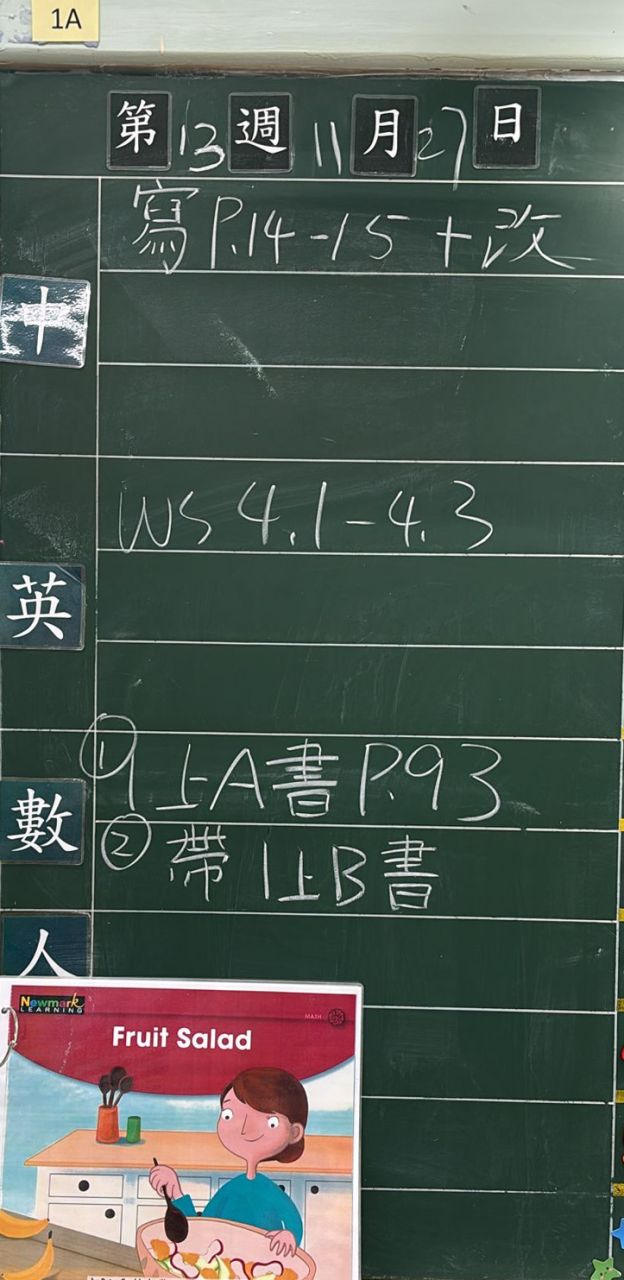 1A
第13週11月27日
寫P.14-15+改
中
WS 4.1-4.3
英
① 1上A書P.93
數
② 帶1上B書
人
Newmark
LEARNING
MATH
Fruit Salad